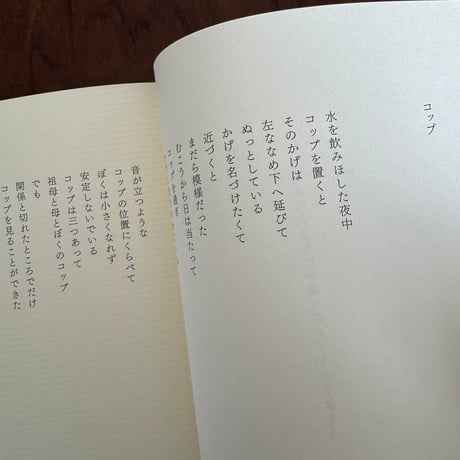 コップ
水を飲みほした夜中
コップを置くと
そのかげは
左ななめ下へ延びて
ぬっとしている
かげを名づけたくて
近づくと
まだら模様だった
むこうから日は当たって
コップを過ぎ
音が立つような
コップの位置にくらべて
ぼくは小さくなれず
安定しないでいる
コップは三つあって
祖母と母とぼくのコップ
でも
関係と切れたところでだけ
コップを見ることができた